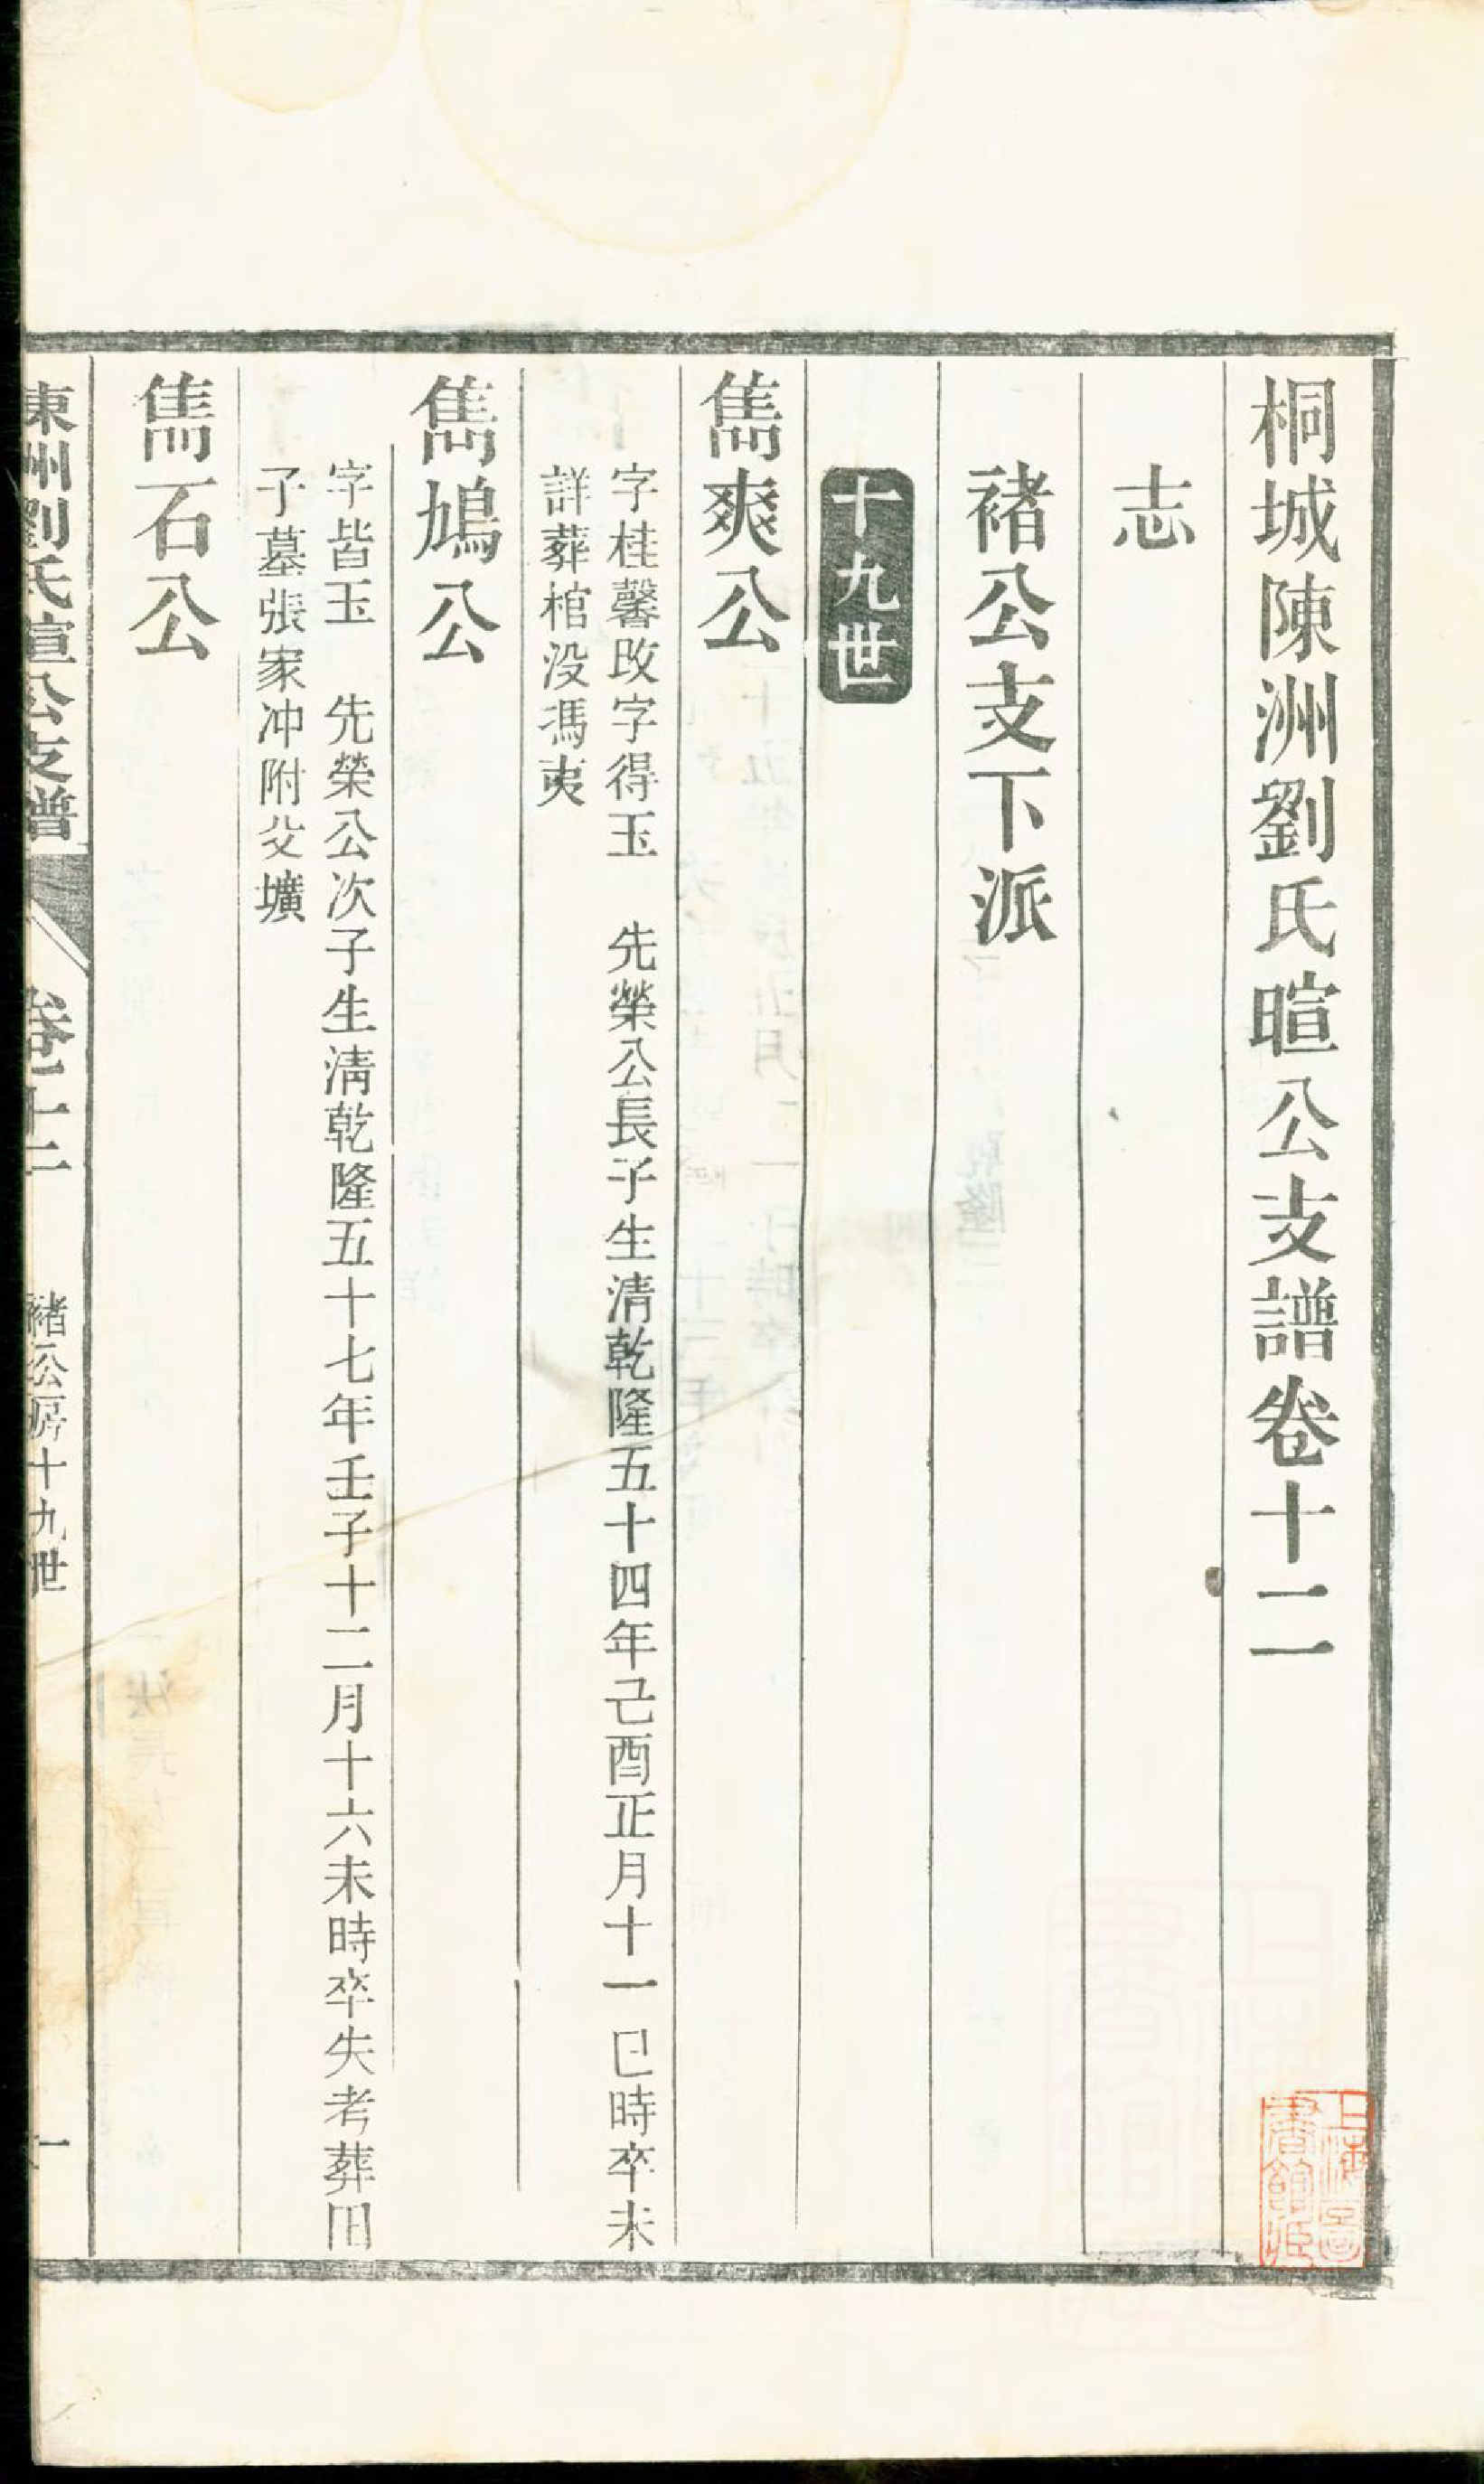 桐城陳洲劉氏暄公支譜卷十二
志
褚公支下派
十九世
雋爽公
字桂馨改字得玉　先榮公長子生清乾隆五十四年己酉正月十一　巳時卒未
詳葬棺没馮夷
雋鳩公
字皆玉　先榮公次子生清乾隆五十七年壬子十二月十六未時卒失考葬田
子墓張家冲附父壙
雋石公
陳洲劉氏暄公支譜　卷十二　褚公房十九世　一
上海圖書館藏